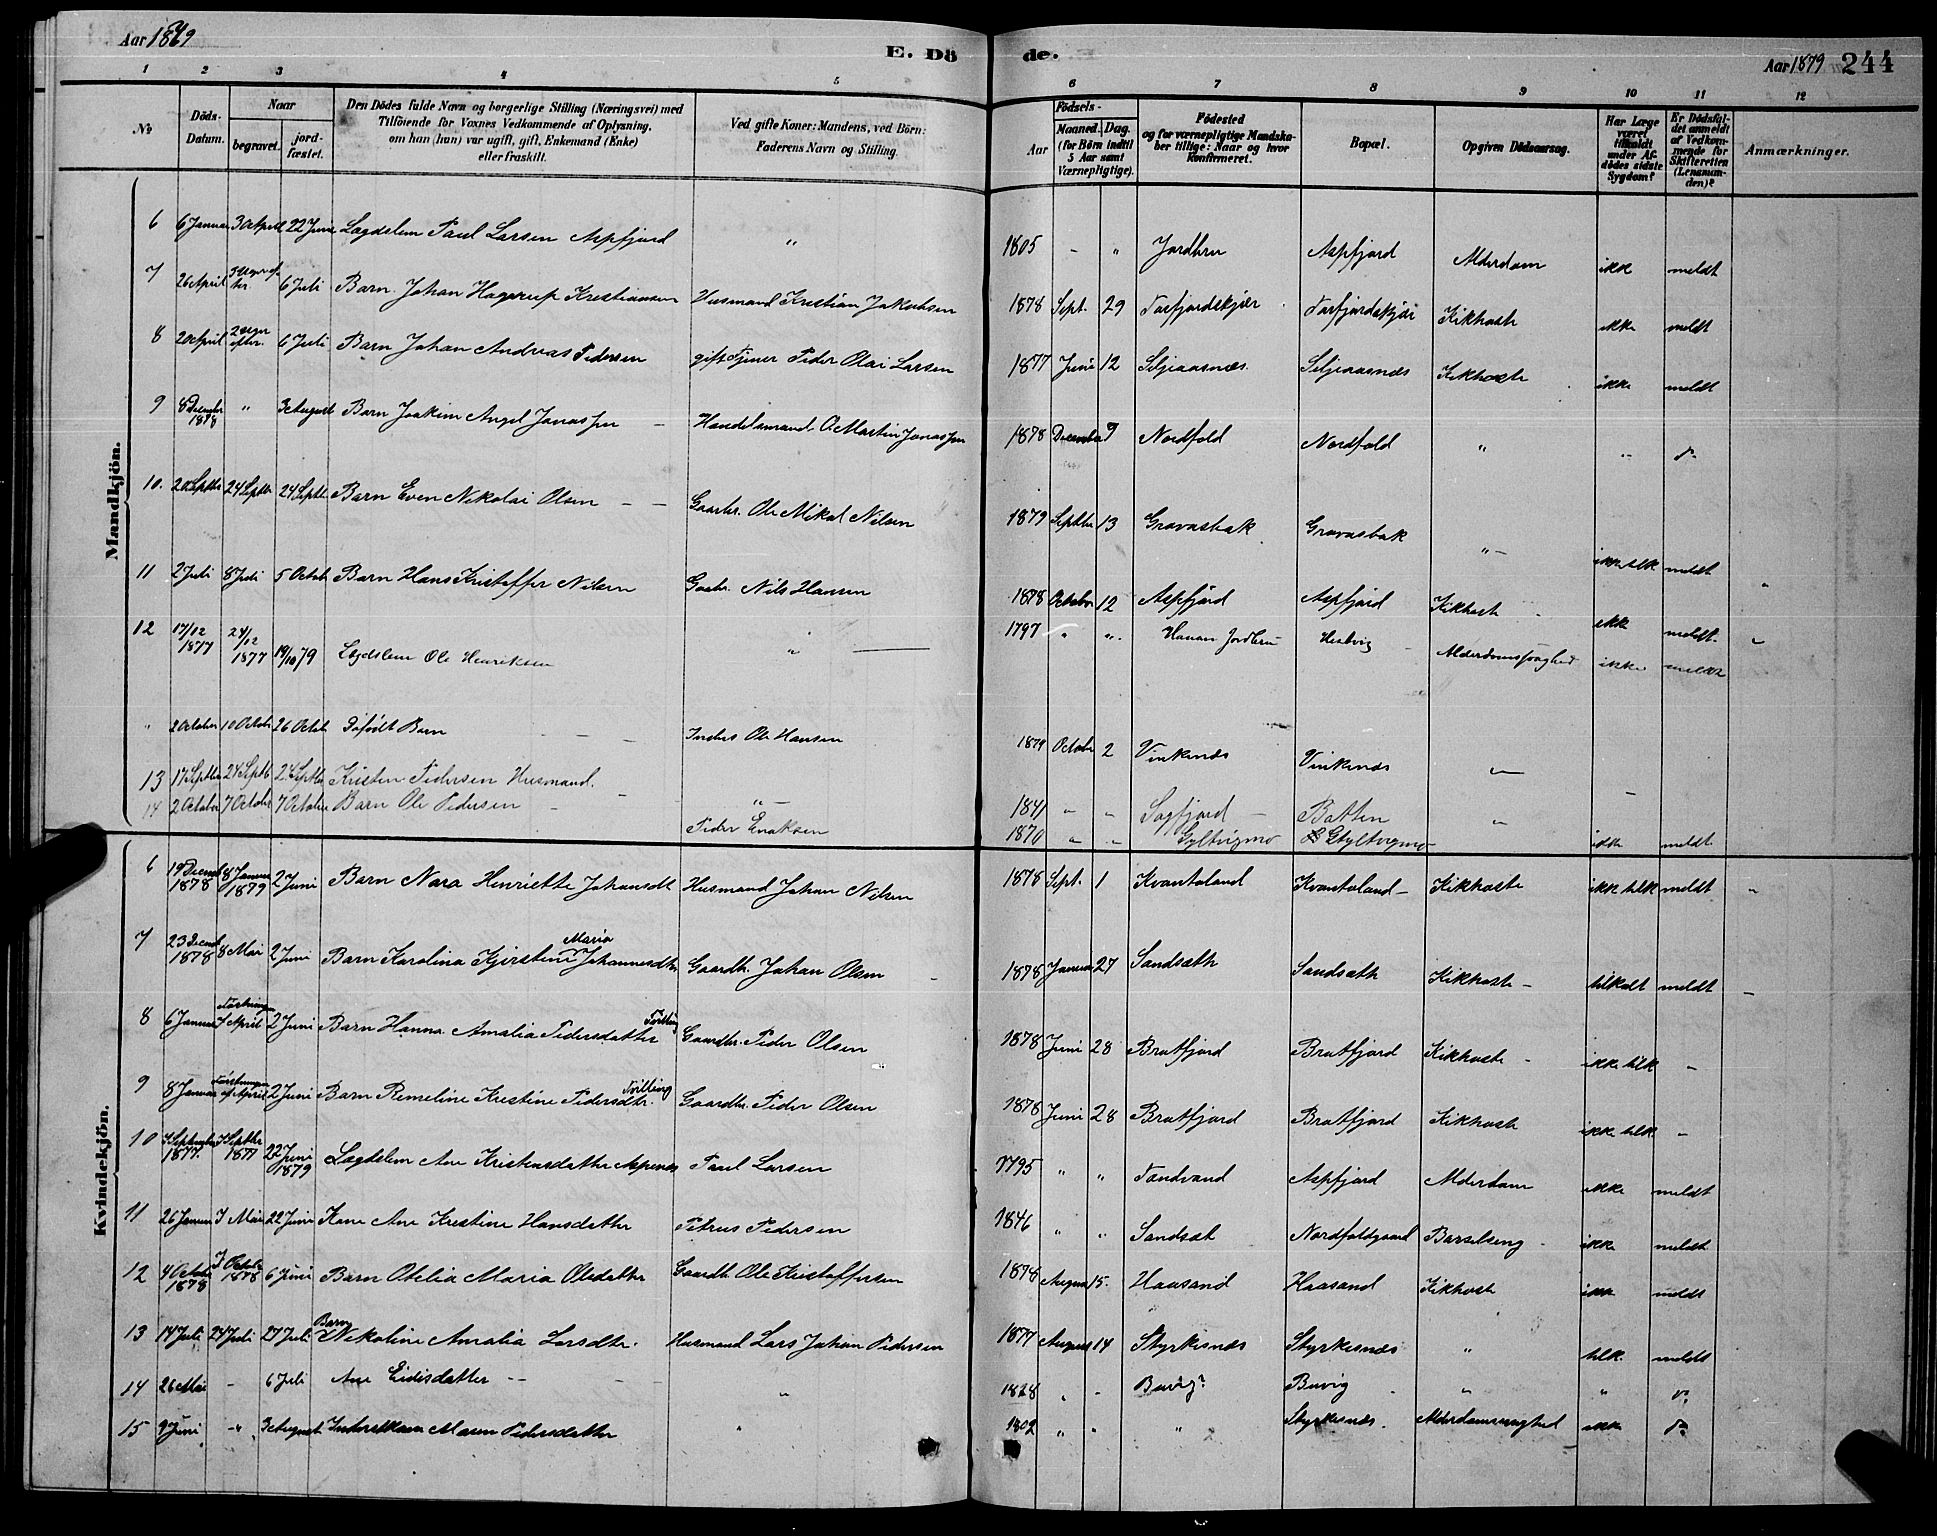 Aar 1879
E. Dö
de.
Aar 1879 244
1 2 3 4 5 6 7 8 9 10 11 12
№
Döds-Datum.
Naar
begravet.
jord-fæstet.
Den Dödes fulde Navn og borgerlige Stilling (Næringsvei) med
Tilföiende for Voxnes Vedkommende af Oplysning,
om han (hun) var ugift, gift, Enkemand (Enke)
eller fraskilt.
Ved gifte Koner: Mandens, ved Börn:
Faderens Navn og Stilling.
Födsels-
Aar
Maaned. Dag.
(for Börn indtil
5 Aar samt
Værnepligtige).
Födested
og for værnepligtige Mandska-
ber tillige: Naar og hvor
Konfirmeret.
Bopæl.
Opgiven Dödsaarsag.
Har Læge
været
tilkaldt
under Af-
dödes sidste
Sygdom?
Er Dödsfal-
det anmeldt
af Vedkom-
mende for
Skifteretten
(Lensman-
den)?
Anmærkninger.
Mandkjön.
6 6 Januar 3 April 22 Juni Lægdslem Paul Larsen Aspfjord " 1805 - " Jordbru Aspfjord Alderdom ikke meldt
7 26 April 6 Juli Barn Johan Hagerup Kristiansen Husmand Kristian Jakobsen 1878 Sept. 29 Torfjordskjær Torfjordskjær Kikhoste ikke meldt
8 2 April 2 Uger efter. 6 Juli Barn Johan Andreas Pedersen gift Tjener Peder Olai Larsen 1877 Juni 12 Seljeaasnæs Seljeaasnæs Kikhoste ikke meldt
9 8 December 1878 " 3 August Barn Joakim Angel Jonassen Handelsmand O. Martin Jonassen 1878 December 9 Nordfold Nordfold " " do
10. 20 Septbr 24 Septbr 24 Septbr Barn Even Nikolai Olsen Gaardbr. Ole Mikal Nilsen 1879 Septbr 13 Gravasbak Gravasbak " ikke tilk meldt
11 2 Juli 8 Juli 5 Octob Barn Hans Kristoffer Nilsen Gaardbr. Nils Hansen 1878 October 12 Aspfjord Aspfjord Kikhoste ikke meldt
12 17/12 1877 24/12 1877 19/10 79 Lægdslem Ole Henriksen " 1797 " " Jordbru Helvig Alderdomssvaghed ikke meldt
" 2 October 10 Octob 26 Octob Döfödt Barn Inders Ole Hansen 1879 Octobr 2 Vinkenæs Vinkenæs "
13 17 Septbr 24 Septb 24 Septbr Kristen Pedersen Husmand. " 1841 " " Sagfjord Botten "
14 2 October 7 October 7 October Barn Ole Pedersen Peder Enoksen 1870 " " Gyltvigmo Gyltvigmo ikke meldt
Kvindekjön.
6 19 Decemb 1878 8 Januar 1879 2 Juni Barn Nora Henriette Johansdt Husmand Johan Nilsen 1878 Sept. 1 Kvantoland Kvantoland Kikhoste ikke tilk meldt
7 23 Decemb 1878 8 Mai 2 Juni Barn Karolina Kjirstine Maria Johannesdtr Gaardb. Johan Olsen 1878 Januar 27 Sandsæth Sandsæth Kikhoste tilkalt meldt
8 6 Januar April 2 Juni Barn Hanna Amalia Pedersdatter Tvilling Gaardbr. Peder Olsen 1878 Juni 28 Bratfjord Bratfjord Kikhoste ikke tilk "
9 8 Januar April 2 Juni Barn Remeline Kristine Pedersdtr. Tvilling Gaardbr. Peder Olsen 1878 Juni 28 Bratfjord Bratfjord Kikhoste ikke tilk "
10 September 1877. Septbr 1877 22 Juni 1879 Lægdslem Ane Kristensdatter Aspenæs Paul Larsen 1795 " " Tandvand Aspfjord Alderdom ikke meldt
11 26 Januar Mai 22 Juni Kone Ane Kristine Hansdatter Petrus Pedersen 1846 " " Sandsæt Nordfoldgaard Barselseng ikke meldt
12 4 October 1878 Octobr 1878 6 Juni Barn Otelia Maria Olsdatter Gaardb. Ole Kristoffersen 1878 August 15. Haasand Haasand Kikhoste ikke meldt
13 14 Juli 24 Juli 27 Juli Barn Nikoline Amalia Larsdtr. Husmand Lars Johan Pedersen 1877 August 14 Styrkesnæs Styrkesnæs " tilk. meldt
14 26 Mai - 6 Juli Ane Eidisdatter " 1828 " " Buvig? Buvig " " do
15 9 Juni " 3 August Maren Pedersdatter " 1802 " " " Styrkesnæs. Alderdomssvaghed ikke do